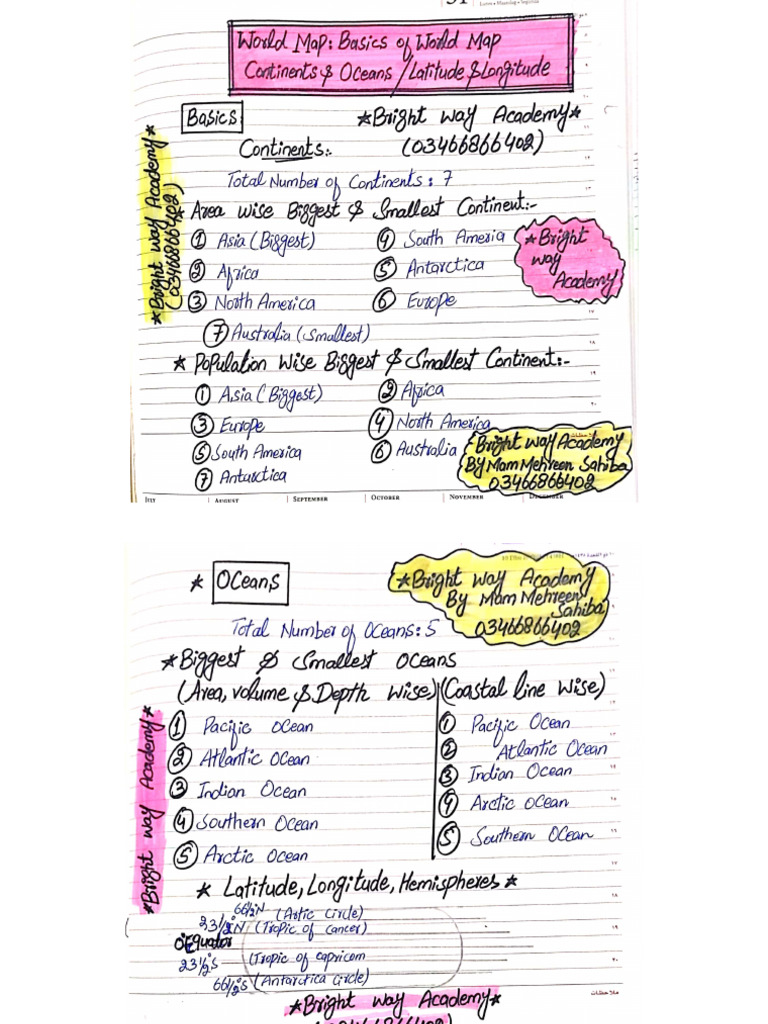 World Map: Basics of World Map
Continents & Oceans / Latitude & Longitude
Basics
*Bright way Academy*
(03466866402)
Continents:.
Total Number of Continents: 7
*Bright way Academy*
(03466866402)
* Area Wise Biggest & Smallest Continent:-
1 Asia (Biggest)
4 South Ameria
2 Africa
5 Antarctica
3 North America
6 Europe
7 Australia (Smallest)
*Bright
way
Academy
* Population Wise Biggest & Smallest Continent:-
1 Asia (Biggest)
2 Africa
3 Europe
4 North America
5 South America
6 Australia
7 Antarctica
Bright way Academy
By Mam Mehreen Sahiba
03466866402
July August September October November December
* Oceans
*Bright way Academy
By Mam Mehreen
Sahiba
03466866402
Total Number of Oceans: 5
*Biggest & Smallest Oceans
(Area, volume & Depth Wise) (Coastal line Wise)
1 Pacific Ocean
2 Atlantic Ocean
3 Indian Ocean
4 Southern Ocean
5 Arctic Ocean
1 Pacific Ocean
2 Atlantic Ocean
3 Indian Ocean
4 Arctic Ocean
5 Southern Ocean
*Bright way Academy*
* Latitude, Longitude, Hemispheres *
66½°N (Artic Circle)
23½°N (Tropic of cancer)
0°Equator
23½°S (Tropic of capricorn
66½°S (Antarctica Circle)
*Bright way Academy*